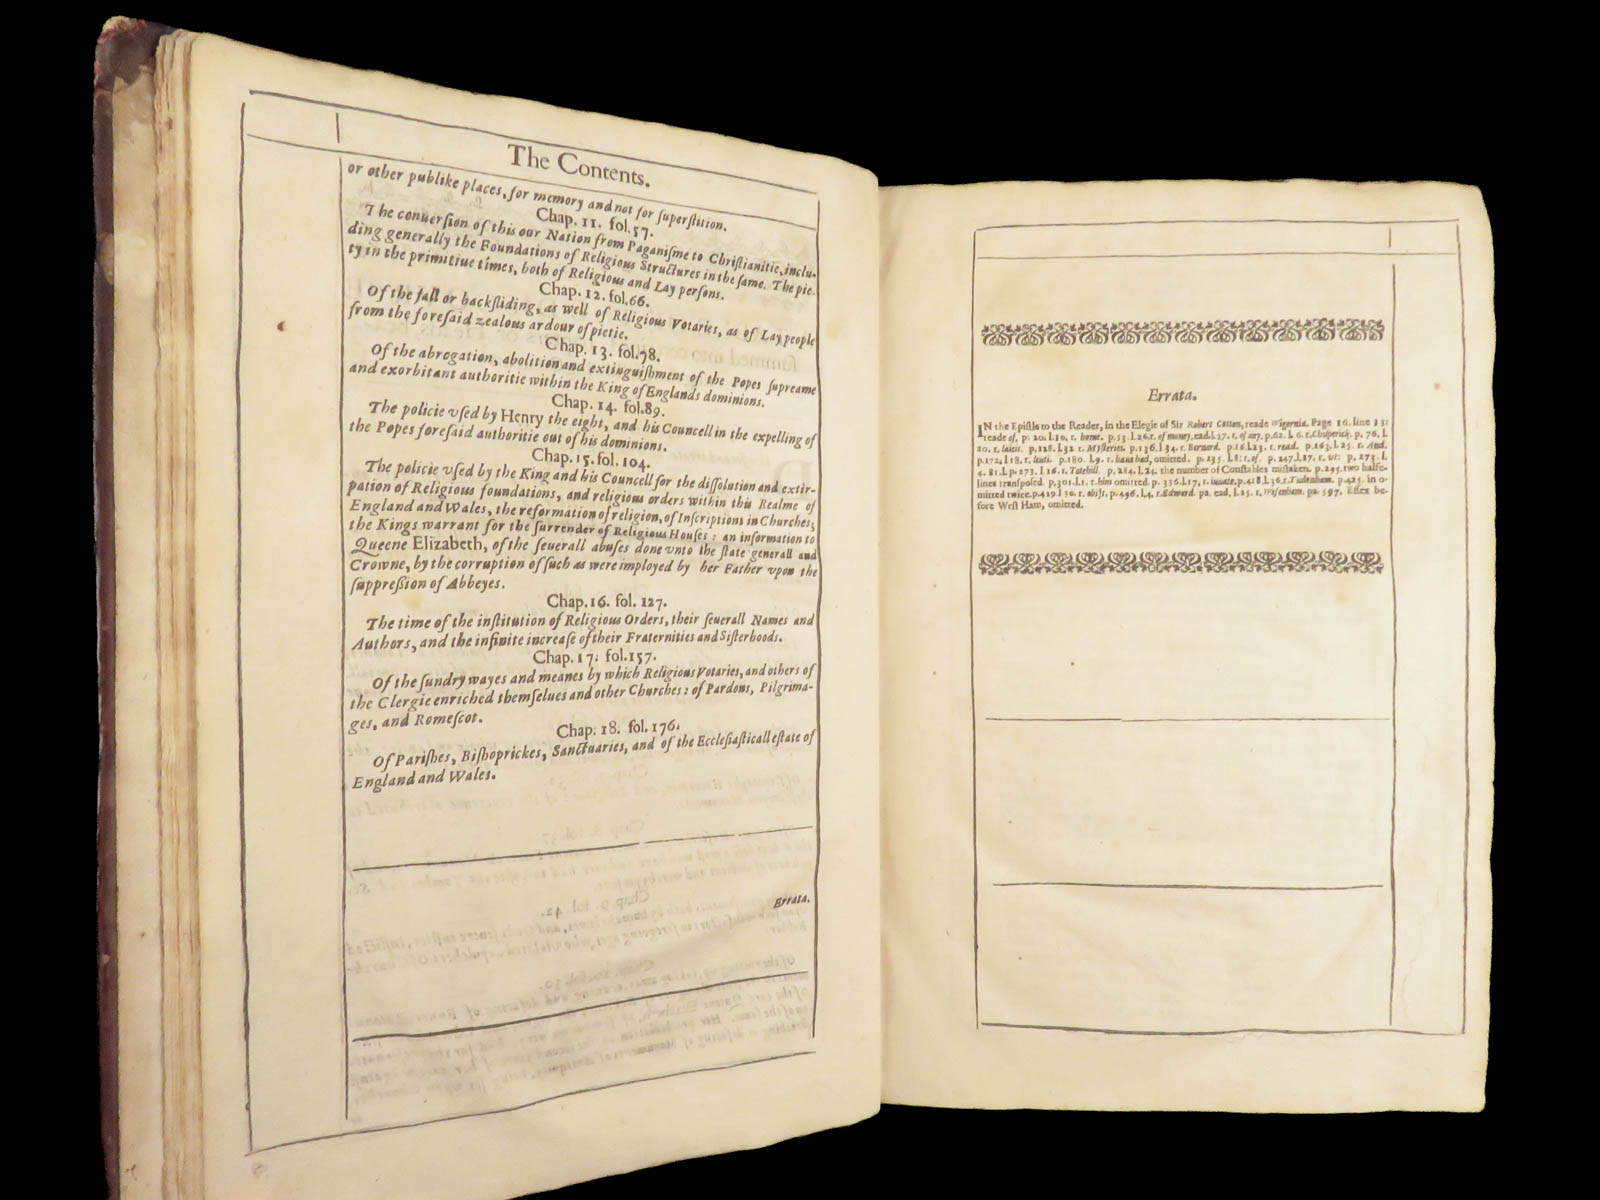 The Contents.
or other publike places, for memory and not for ſuperſtition.
Chap. 11. fol. 57.
The conuerſion of this our Nation from Paganiſme to Chriſtianitie, inclu-
ding generally the Foundations of Religious Structures in the ſame. The pie-
ty in the primitiue times, both of Religious and Lay perſons.
Chap. 12. fol. 66.
Of the fall or backſliding, as well of Religious Votaries, as of Lay people
from the foreſaid zealous ardour of pietie.
Chap. 13. fol. 78.
Of the abrogation, abolition and extinguiſhment of the Popes ſupreame
and exorbitant authoritie within the King of Englands dominions.
Chap. 14. fol. 89.
The policie vſed by Henry the eight, and his Councell in the expelling of
the Popes foreſaid authoritie out of his dominions.
Chap. 15. fol. 104.
The policie vſed by the King and his Councell for the diſſolution and extir-
pation of Religious foundations, and religious orders within this Realme of
England and Wales, the reformation of religion, of Inſcriptions in Churches;
the Kings warrant for the ſurrender of Religious Houſes: an information to
Queene Elizabeth, of the ſeuerall abuſes done vnto the ſtate generall and
Crowne, by the corruption of ſuch as were imployed by her Father vpon the
ſuppreſsion of Abbeyes.
Chap. 16. fol. 127.
The time of the inſtitution of Religious Orders, their ſeuerall Names and
Authors, and the infinite increaſe of their Fraternities and Siſterhoods.
Chap. 17. fol. 157.
Of the ſundry wayes and meanes by which Religious Votaries, and others of
the Clergie enriched themſelues and other Churches: of Pardons, Pilgrima-
ges, and Romeſcot.
Chap. 18. fol. 176.
Of Pariſhes, Biſhoprickes, Sanctuaries, and of the Eccleſiaſticall eſtate of
England and Wales.
Errata.
Errata.
IN the Epiſtle to the Reader, in the Elegie of Sir Robert Cotton, reade Wigornia. Page 16. line 13.
reade of, p. 20. l. 10. r. borne. p. 53. l. 26. r. of money, ead. l. 27. r. of any, p. 62. l. 6. r. p. 76. l.
20. r. laicis. p. 128. l. 32 r. Myſteries. p. 136. l. 34. r. Bernard. p. 161. l. 23. r. read. p. 163. l. 25. r. And.
p. 172, l. 18. r. p. 180. l. 9. r. omitted. p. 235. l. 8. r. of p. 247. l. 17. r. vt: p. 273. l.
4. 81. l. p. 273. l. 16. r. Totehill. p. 284. l. 24. the number of Conſtables miſtaken. p. 295. two halfe-
lines tranſpoſed. p. 301. l. 1. r. him omitted. p. 336. l. 17, r. p. 418. l. 36. r. Tudenham. p. 425. in o-
mitted twice. p. 429. l. 30. r. p. 496. l. 4. r. Edward. pa. ead. l. 25. r. Weſenham. pa. 597. Eſſex be-
fore Weſt Ham, omitted.